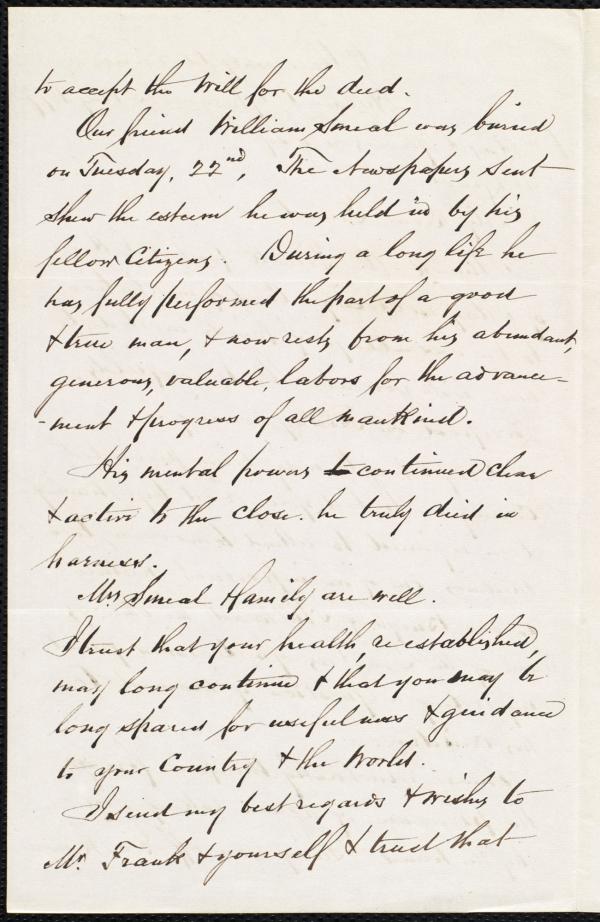 to accept the Will for the deed.
Our friend William Smeal was buried
on Tuesday, 22nd, The Newspapers sent
shew the esteem he was held in by his
fellow Citizens. During a long life he
has fully performed the part of a good
& true man, & now rests from his abundant,
generous, valuable, labors for the advance-
-ment & progress of all mankind.
His mental powers to continued clear
& active to the close. he truly died in
harness.
Mrs Smeal & family are well.
I trust that your health, re established,
may long continue & that you may be
long spared for usefulness & guidance
to your Country & the World.
I send my best regards & wishes to
Mr. Frank & yourself & trust that